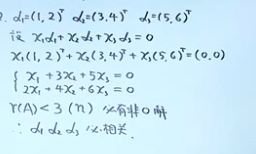 α₁=(1,2)ᵀ α₂=(3,4)ᵀ α₃=(5,6)ᵀ
设 x₁α₁+x₂α₂+x₃α₃=0
x₁(1,2)ᵀ+x₂(3,4)ᵀ+x₃(5,6)ᵀ=(0,0)
{ x₁+3x₂+5x₃=0
2x₁+4x₂+6x₃=0
r(A)<3(n) 必有非0解
∴ α₁ α₂ α₃ 必相关.